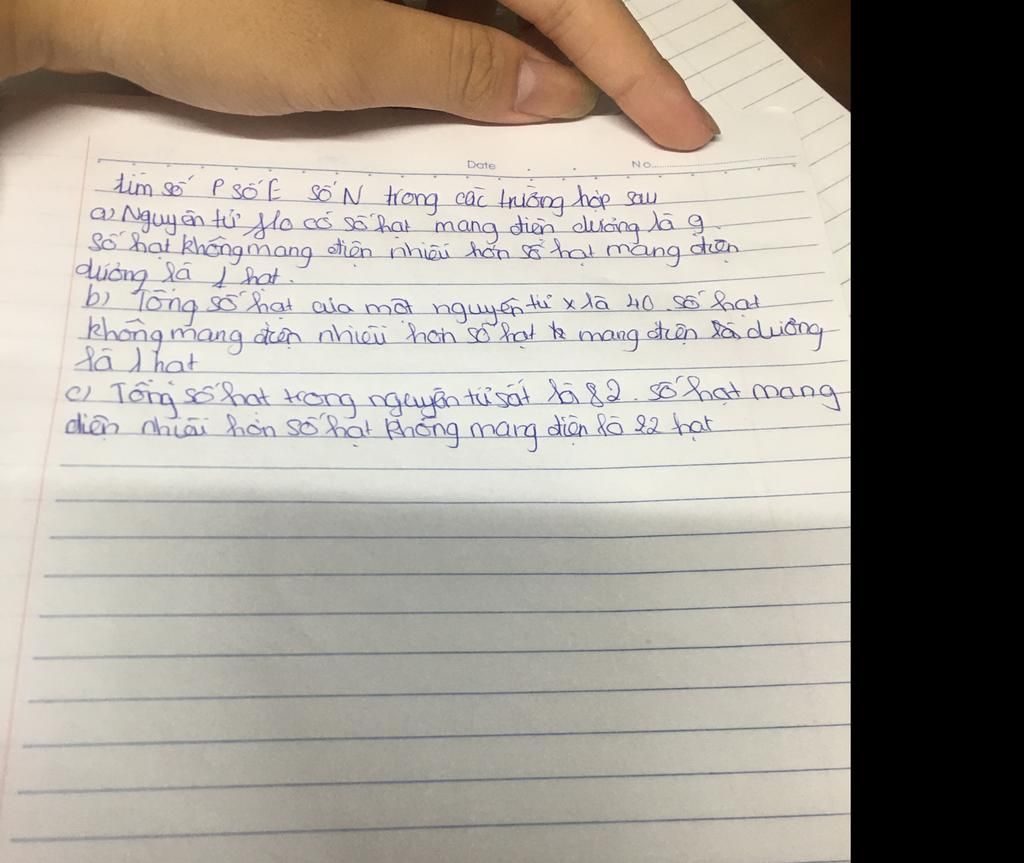 Date No.
tìm số P số E số N trong các trường hợp sau
a) Nguyên tử flo có số hạt mang điện dương là 9.
số hạt không mang điện nhiều hơn số hạt mang điện
dương là 1 hạt.
b) Tổng số hạt của một nguyên tử x là 40. số hạt
không mang điện nhiều hơn số hạt mang điện dương
là 1 hạt
c) Tổng số hạt trong nguyên tử sắt là 82. số hạt mang
điện nhiều hơn số hạt không mang điện là 22 hạt